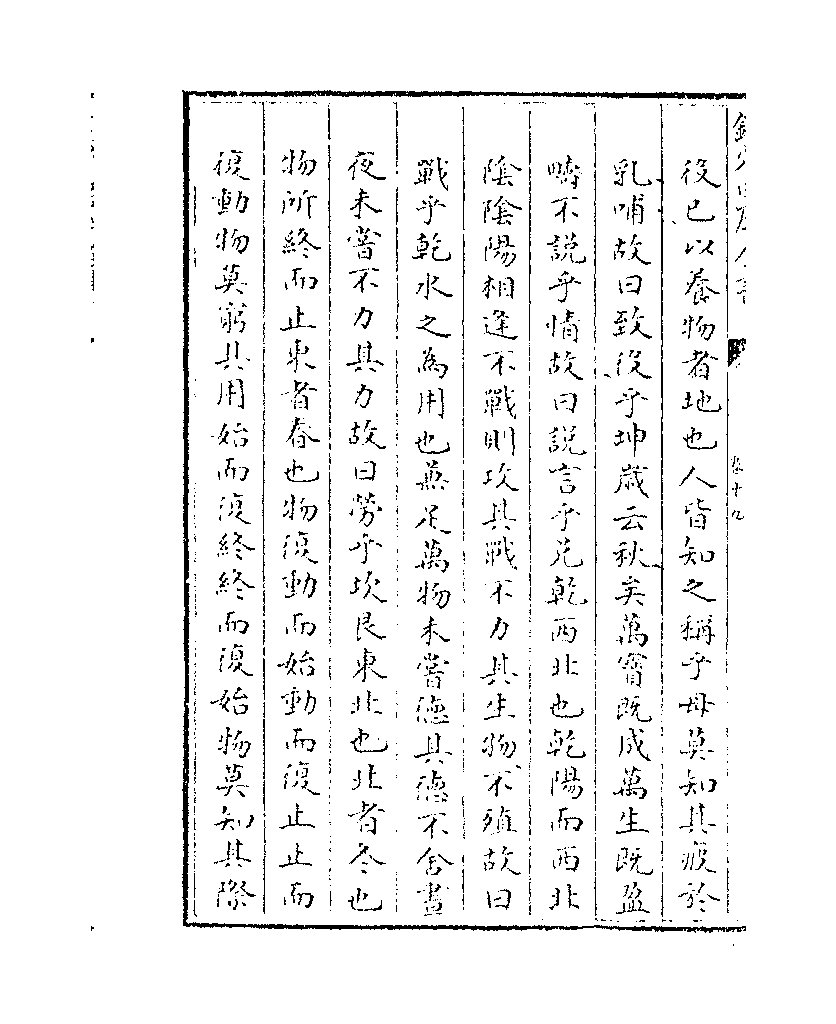 欽定四庫全書
卷十九
役已以養物者地也人皆知之稱乎母莫知其疲於
乳哺故曰致役乎坤歳云秋矣萬寳既成萬生既盈
疇不説乎情故曰説言乎兑乾西北也乾陽而西北
陰陰陽相逢不戰則攻其戰不力其生物不殖故曰
戰乎乾水之為用也兼足萬物未嘗徳其徳不舍晝
夜未嘗不力其力故曰勞乎坎艮東北也北者冬也
物所終而止東者春也物復動而始動而復止止而
復動物莫窮其用始而復終終而復始物莫知其際